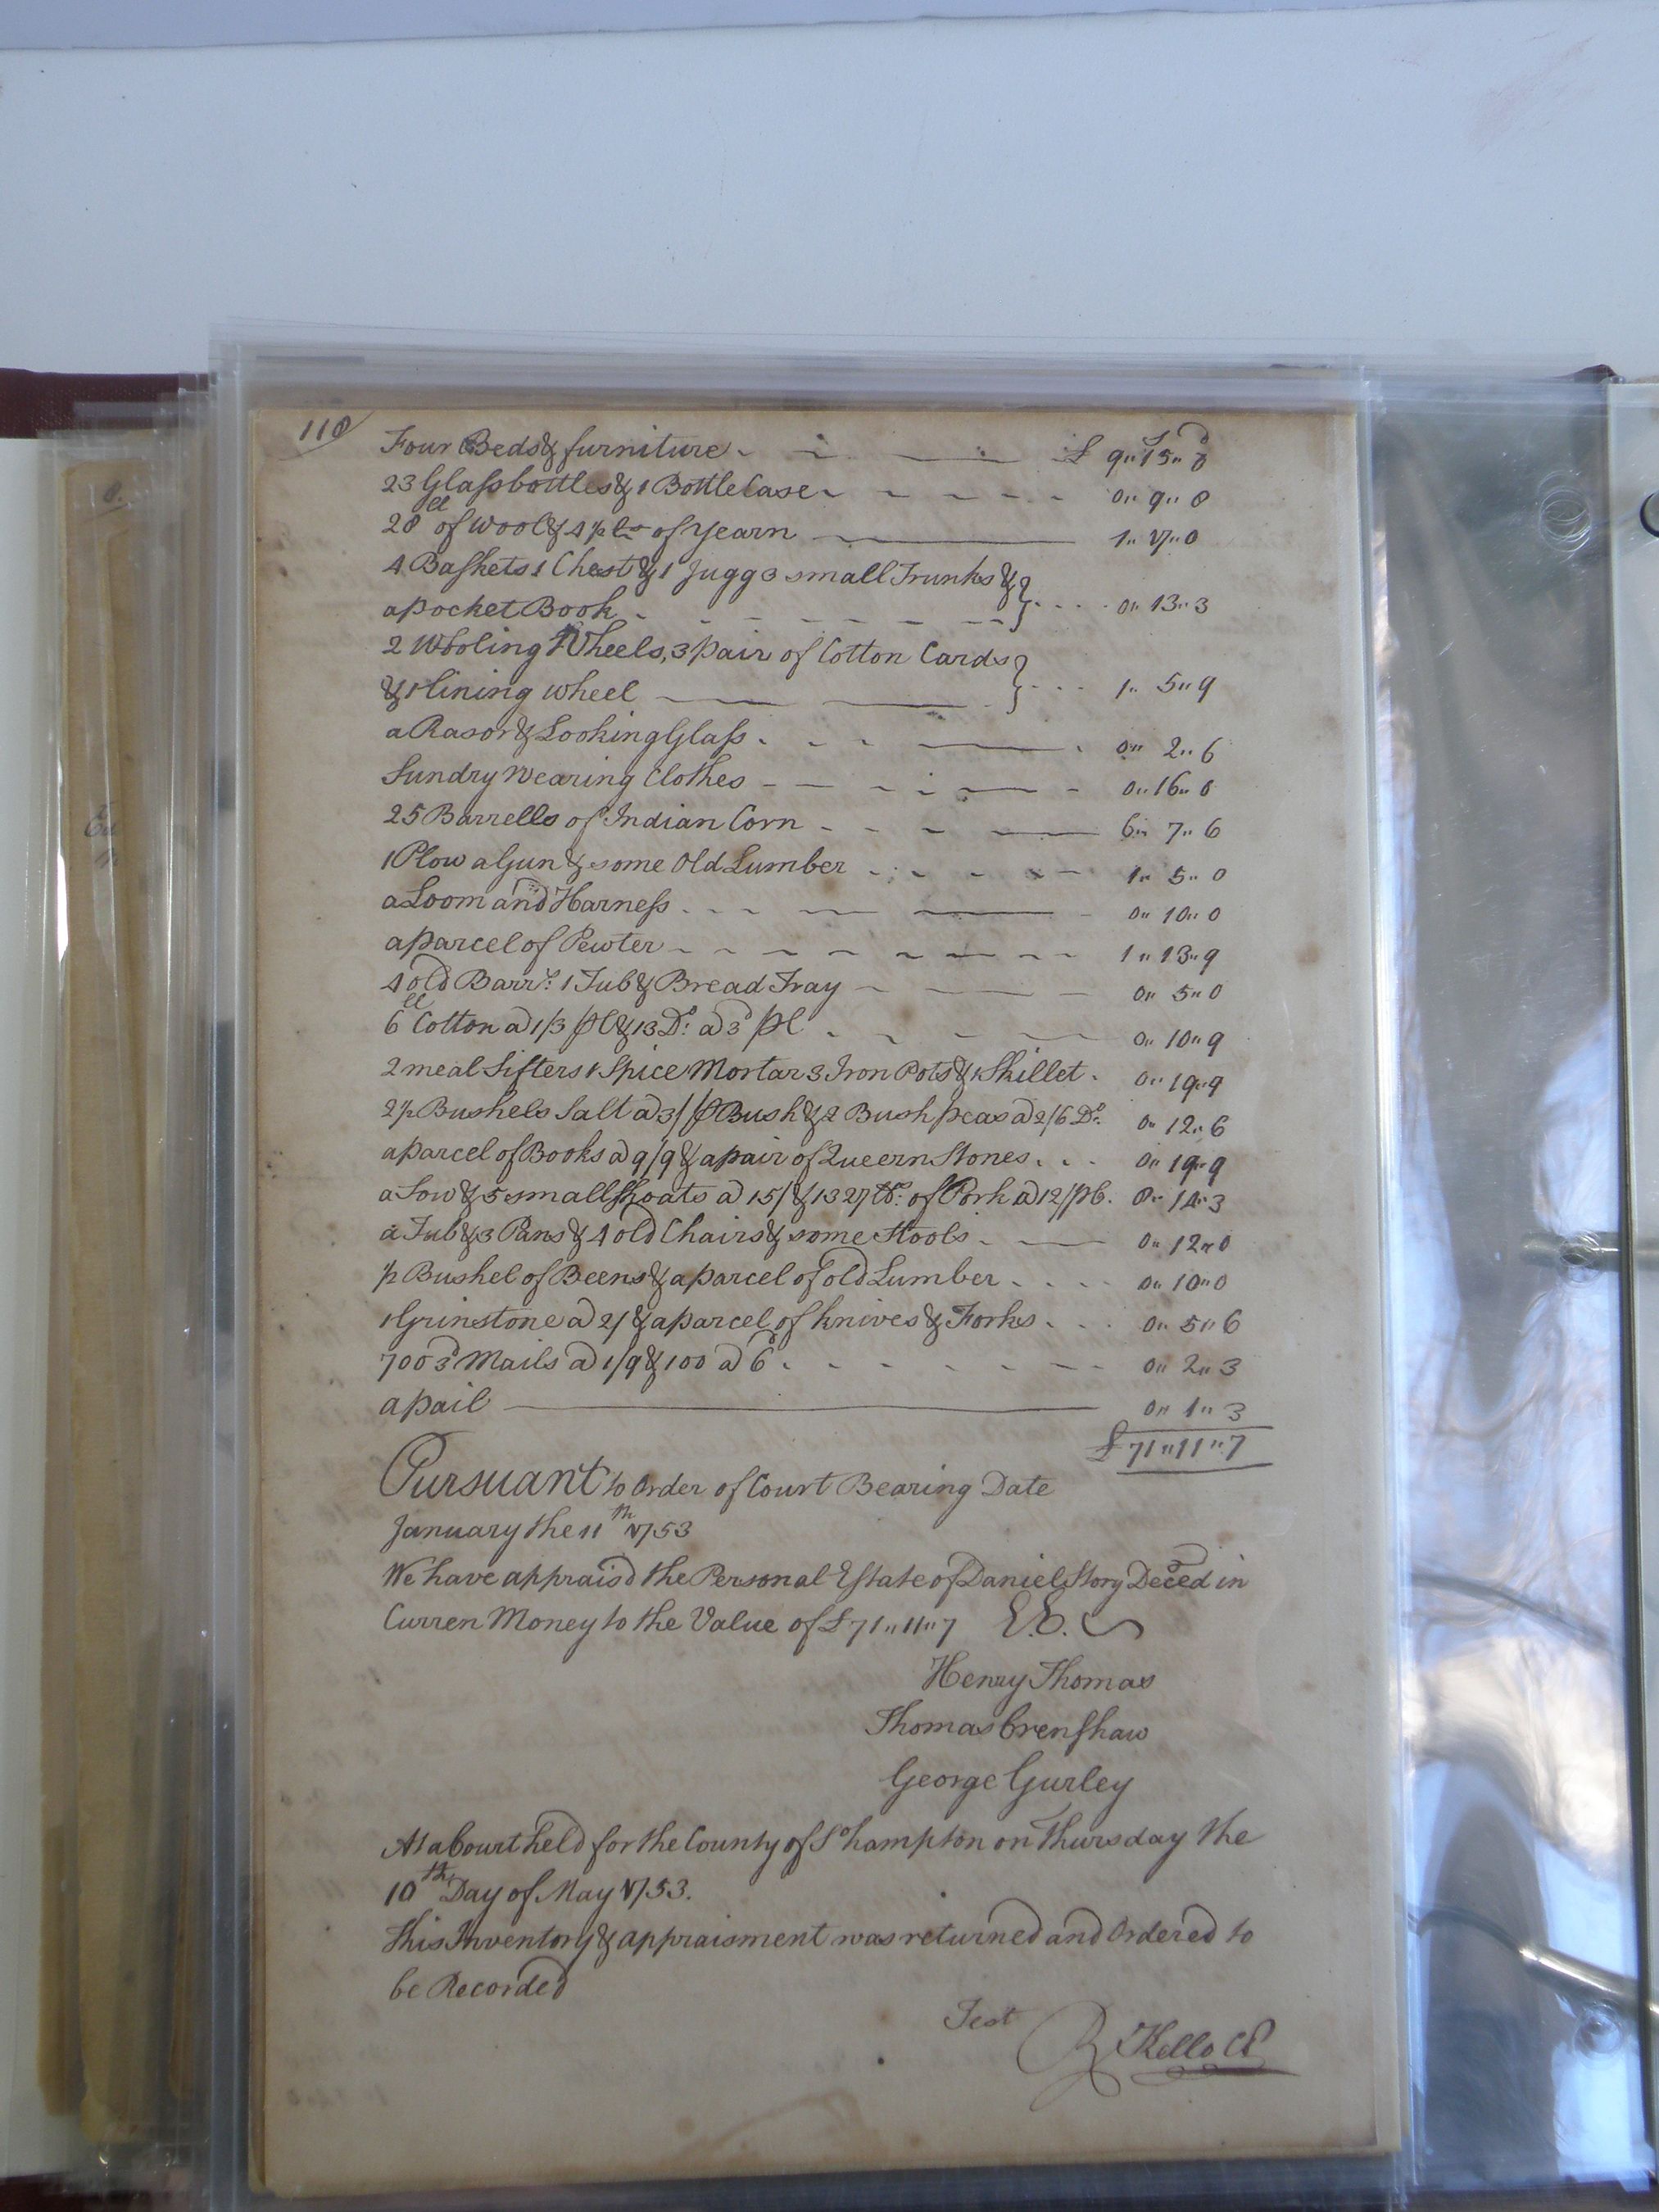 110
Four Beds & furniture £ 9" 15" 0
23 Glass bottles & 1 Bottle Case 0" 9" 8
28 ll of Wool & 4 1/2 lb of Yearn 1" 17" 0
4 Baskets 1 Chest & 1 Jugg 3 small Trunks &
a pocket Book 0" 13" 3
2 Wooling Wheels, 3 pair of Cotton Cards
& 1 lining wheel 1" 5" 9
a Rasor & Looking Glass 0" 2" 6
Sundry Wearing Clothes 0" 16" 0
25 Barrells of Indian Corn 6" 7" 6
1 Plow a Gun & some Old Lumber 1" 5" 0
a Loom and Harness 0" 10" 0
a parcel of Pewter 1" 13" 9
4 old Barr.s 1 Tub & Bread Tray 0" 5" 0
6 ll Cotton a 1/3 pl & 13 Do. a 3d pl 0" 10" 9
2 meal Sifters 1 Spice Mortar 3 Iron Pots & 1 Skillet 0" 19" 9
2 1/2 Bushels Salt a 3/ p Bush & 2 Bush peas a 2/6 Do. 0" 12" 6
a parcel of Books a 9/9 & a pair of Queern Stones 0" 19" 9
a Sow & 5 small Shoats a 15/ & 1327 lb. of Pork a 12/ p C. 8" 14" 3
a Tub & 3 Pans & 4 old Chairs & some Stools 0" 12" 0
1/2 Bushel of Beens & a parcel of old Lumber 0" 10" 0
1 Grinstone a 2/ & a parcel of knives & Forks 0" 5" 6
700 3d Nails a 1/9 & 100 a 6d 0" 2" 3
a pail 0" 1" 3
£ 71" 11" 7
Pursuant to Order of Court Bearing Date
January the 11th 1753
We have apprais'd the Personal Estate of Daniel Story Deced in
Curren Money to the Value of £ 71" 11" 7 E.E.
Henry Thomas
Thomas Crenshaw
George Gurley
At a Court held for the County of So hampton on Thursday the
10th Day of May 1753.
This Inventory & appraisment was returned and Ordered to
be Recorded
Test R Kello Cl